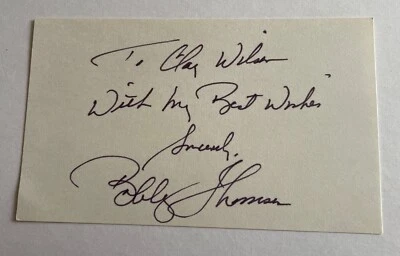 To Clay Wilson
With My Best Wishes
Sincerely,
Bobby Thomson